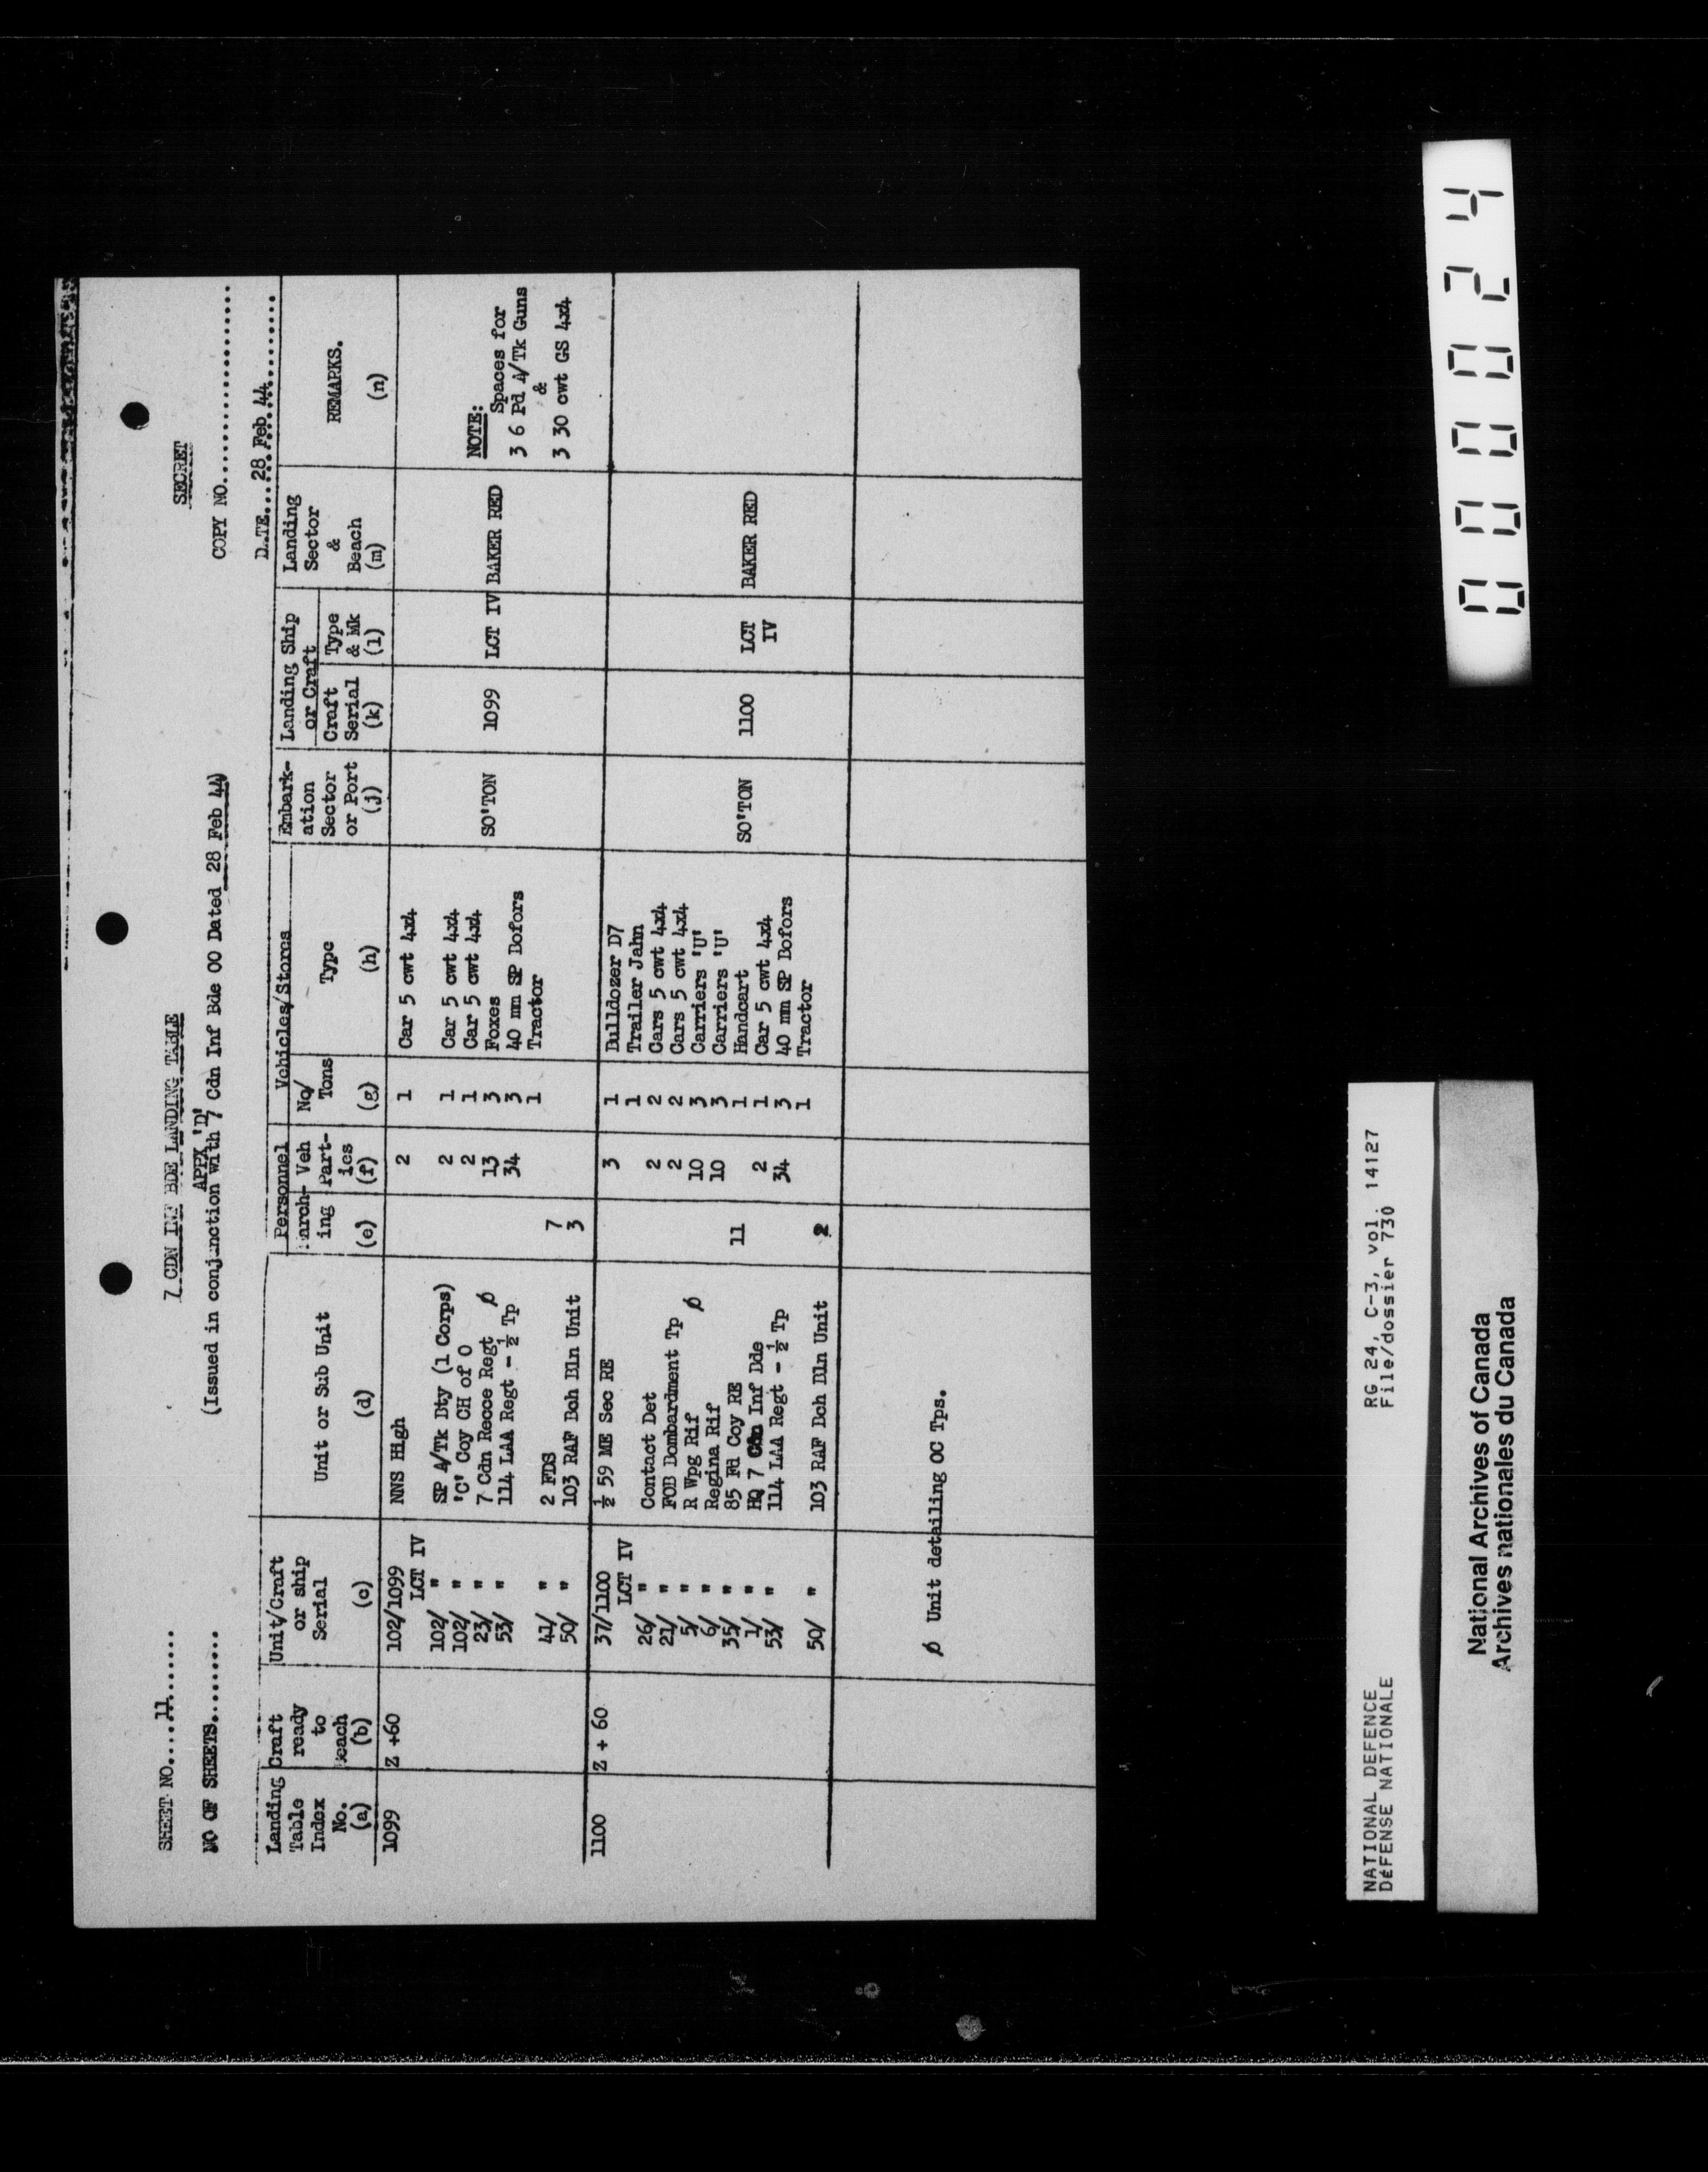 SHEET NO....11......
NO OF SHEETS........
7 CDN INF BDE LANDING TABLE
APPX 'D'
(Issued in conjunction with 7 Cdn Inf Bde OO Dated 28 Feb 44)
SECRET
COPY NO......................
DATE....28 Feb 44..........
Landing Table Index No. (a) | Craft ready to Beach (b) | Unit/Craft or ship Serial (c) | Unit or Sub Unit (d) | Personnel March-ing (e) | Veh Part-ies (f) | Vehicles/Stores No/Tons (g) | Type (h) | Embark-ation Sector or Port (j) | Landing Ship or Craft Craft Serial (k) | Type & Mk (l) | Landing Sector & Beach (m) | REMARKS. (n)
1099 Z +60 102/1099 NNS High 2 1 Car 5 cwt 4x4
LCT IV
102/ " SP A/Tk Bty (1 Corps) 2 1 Car 5 cwt 4x4
102/ " 'C' Coy CH of O 2 1 Car 5 cwt 4x4 NOTE:
23/ " 7 Cdn Recce Regt ø 13 3 Foxes SO'TON 1099 LCT IV BAKER RED Spaces for
53/ " 114 LAA Regt - ½ Tp 34 3 40 mm SP Bofors 3 6 Pd A/Tk Guns
1 Tractor &
41/ " 2 FDS 7 3 30 cwt GS 4x4
50/ " 103 RAF Bch Bln Unit 3
1100 Z + 60 37/1100 ½ 59 ME Sec RE 3 1 Bulldozer D7
LCT IV 1 Trailer Jahn
26/ " Contact Det 2 2 Cars 5 cwt 4x4
21/ " FOB Bombardment Tp 2 2 Cars 5 cwt 4x4
5/ " R Wpg Rif ø 10 3 Carriers 'U'
6/ " Regina Rif 10 3 Carriers 'U'
35/ " 85 Fd Coy RE 11 1 Handcart SO'TON 1100 LCT BAKER RED
1/ " HQ 7 Cdn Inf Bde 2 1 Car 5 cwt 4x4 IV
53/ " 114 LAA Regt - ½ Tp 34 3 40 mm SP Bofors
1 Tractor
50/ " 103 RAF Bch Bln Unit 2
ø Unit detailing OC Tps.
NATIONAL DEFENCE RG 24, C-3, vol. 14127
DéFENSE NATIONALE File/dossier 730
National Archives of Canada
Archives nationales du Canada
000024